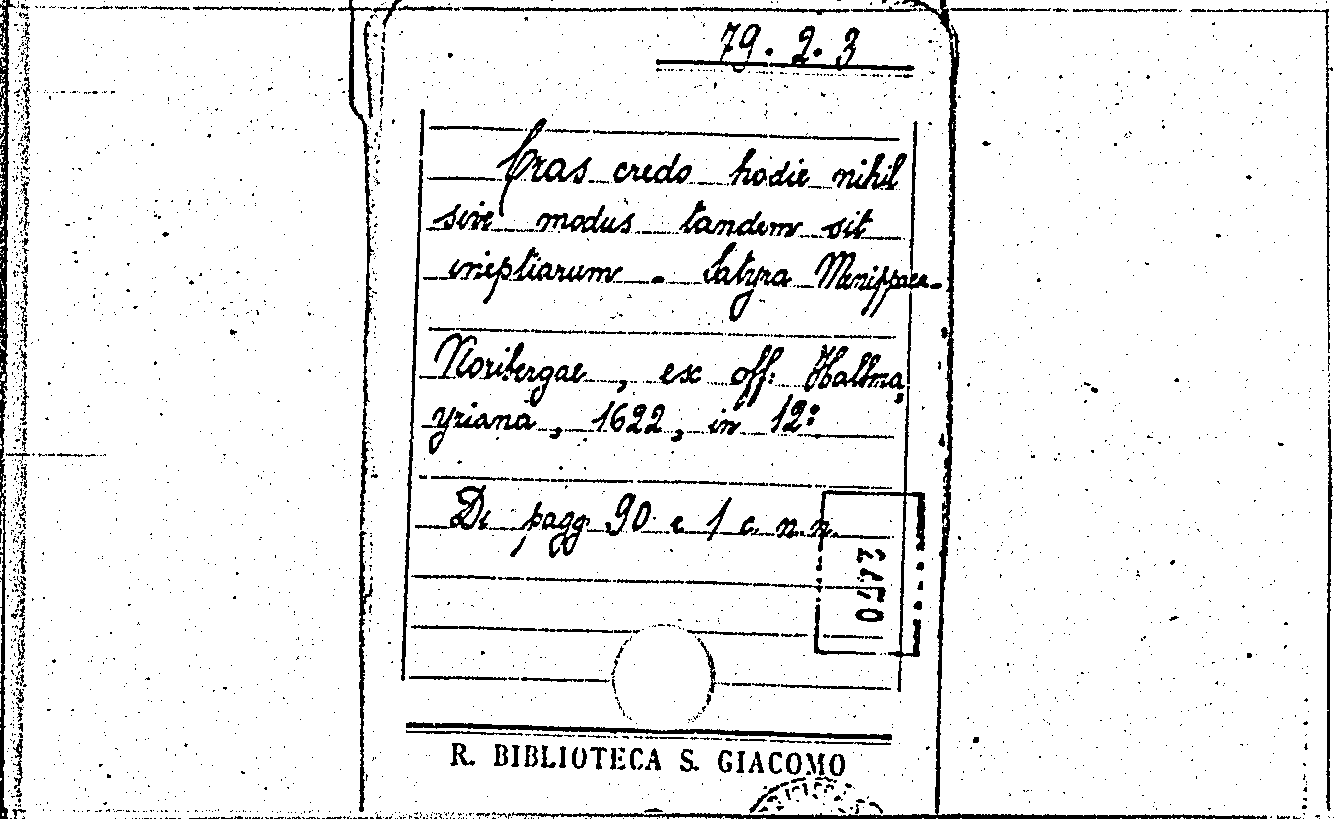 79. 2. 3
Cras credo hodie nihil
sive modus tandem sit
ineptiarum - Satyra Menippaea.
Noribergae, ex off. Halbma,
yriana, 1622, in 12°
Di pagg 90 e 1 c. n.n.
R. BIBLIOTECA S. GIACOMO